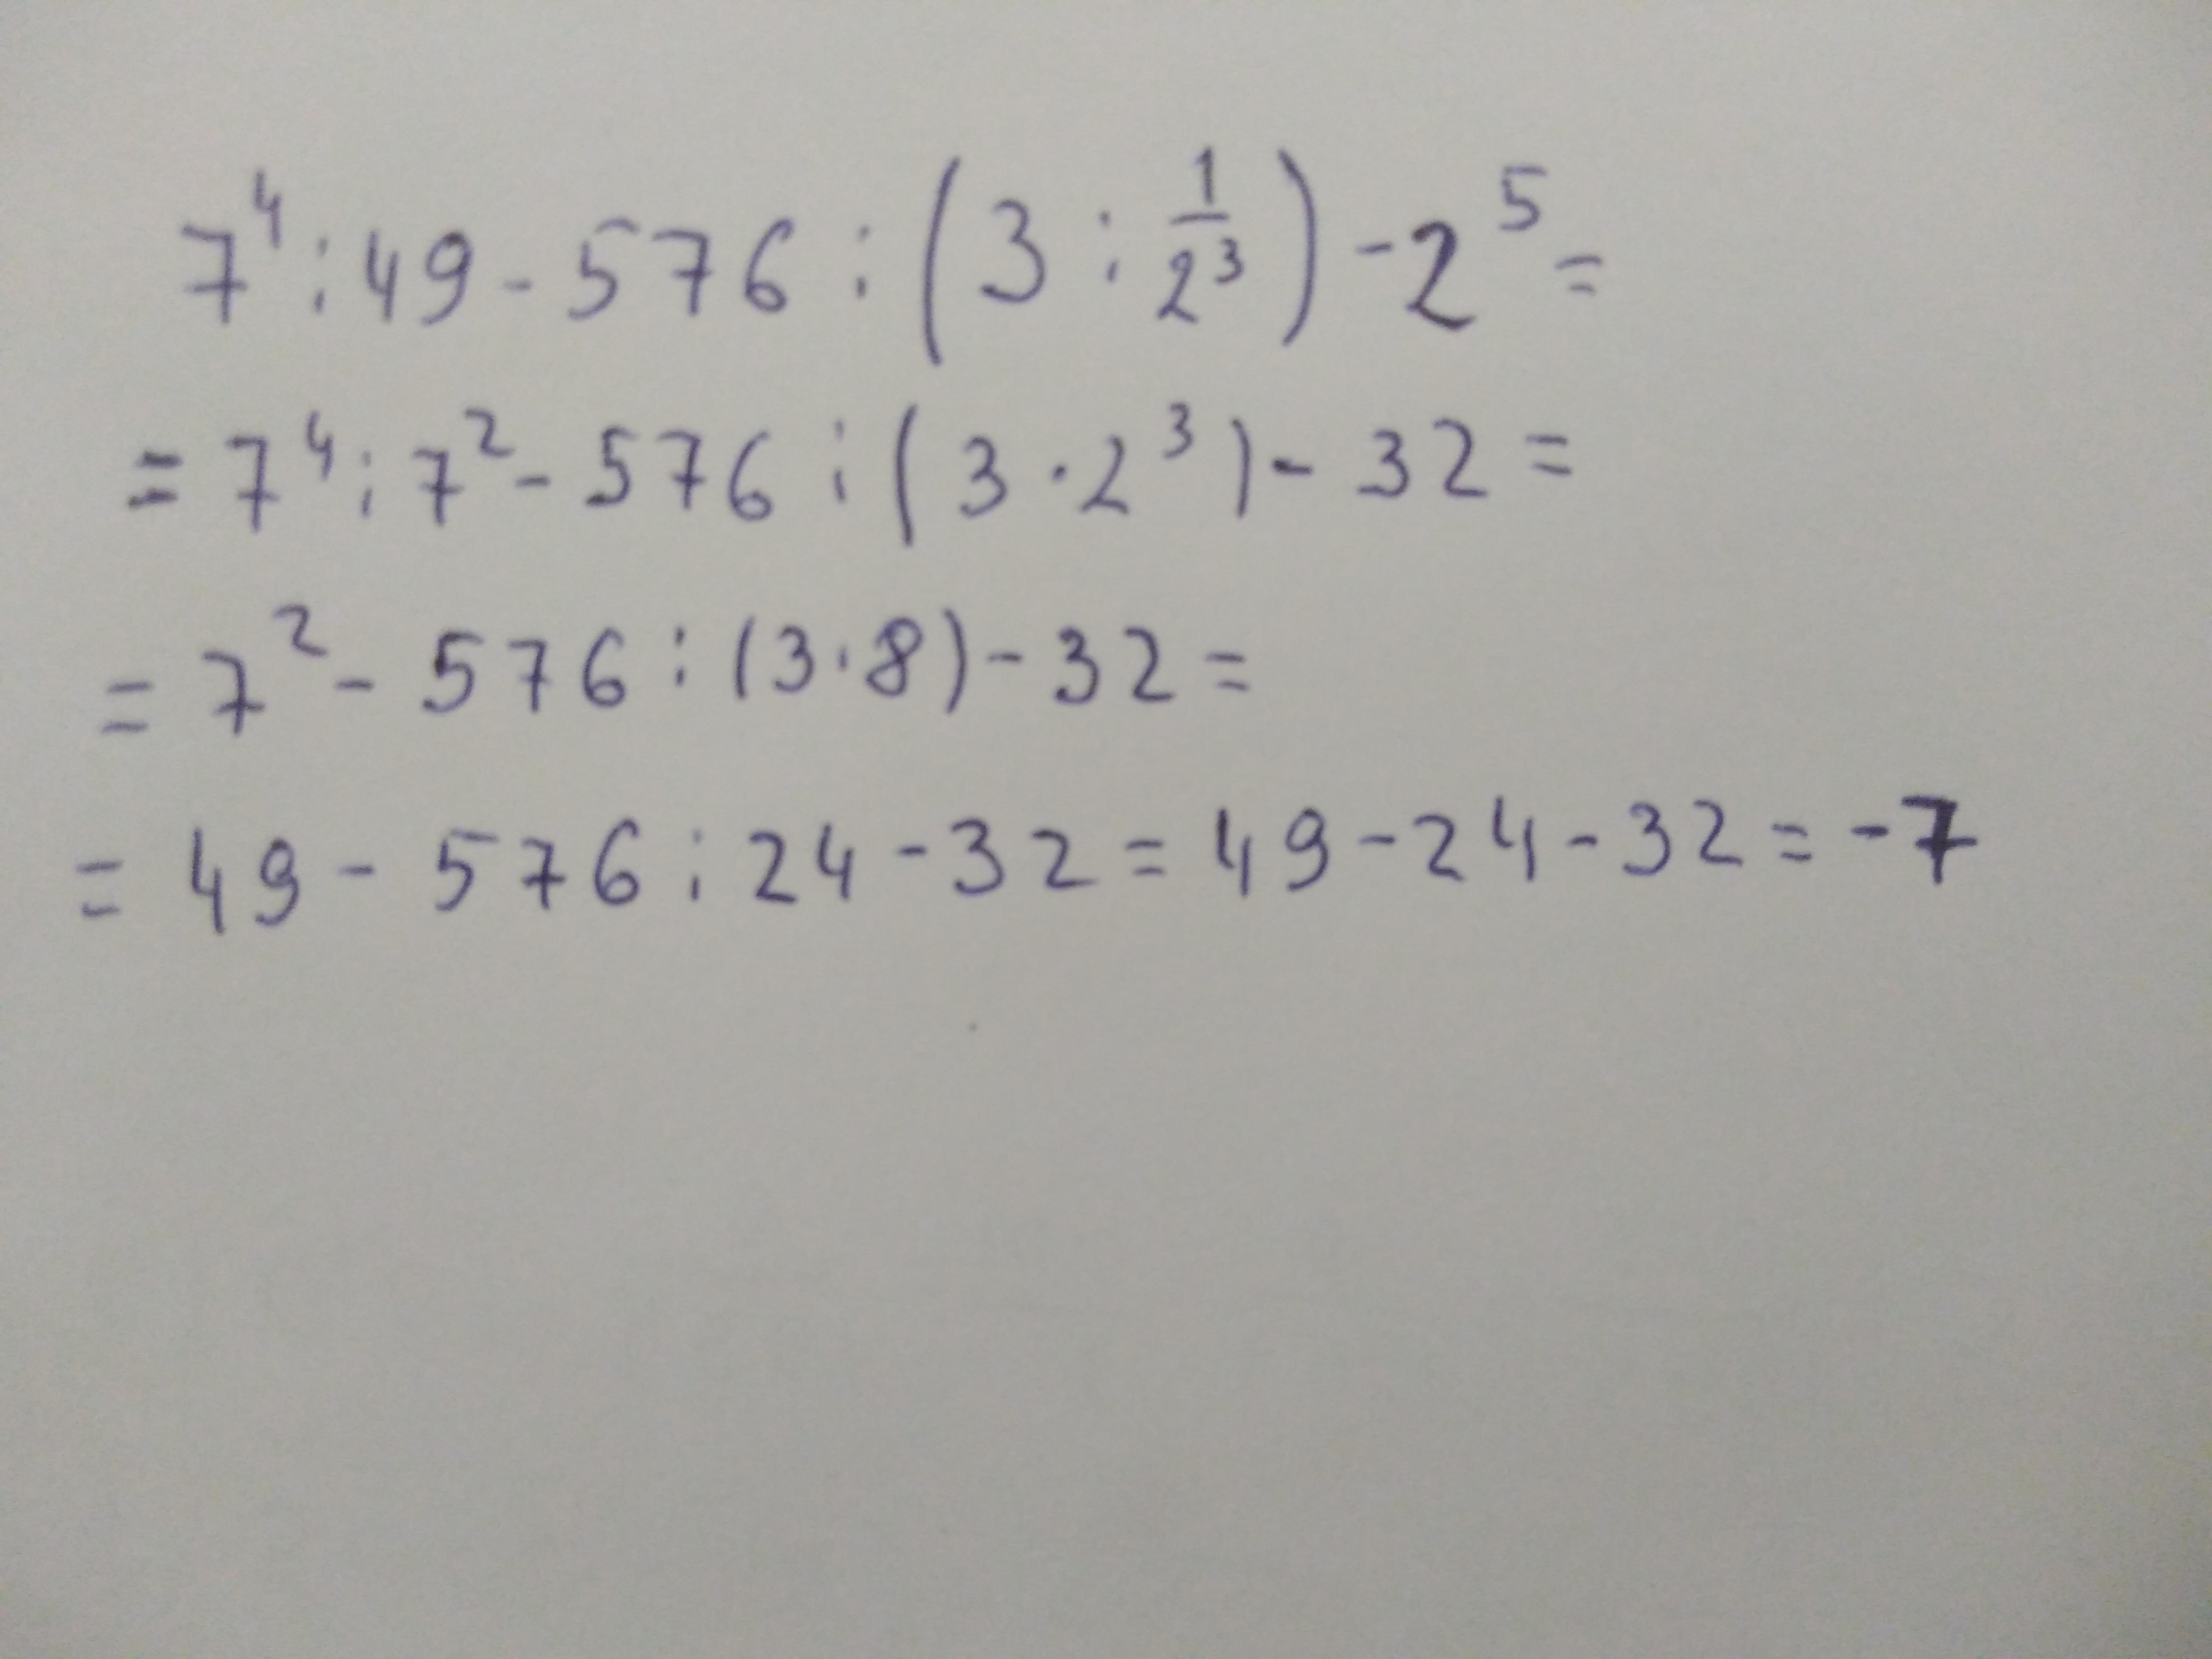 7⁴:49-576:(3:1/2³)-2⁵=
=7⁴:7²-576:(3·2³)-32=
=7²-576:(3·8)-32=
=49-576:24-32=49-24-32=-7